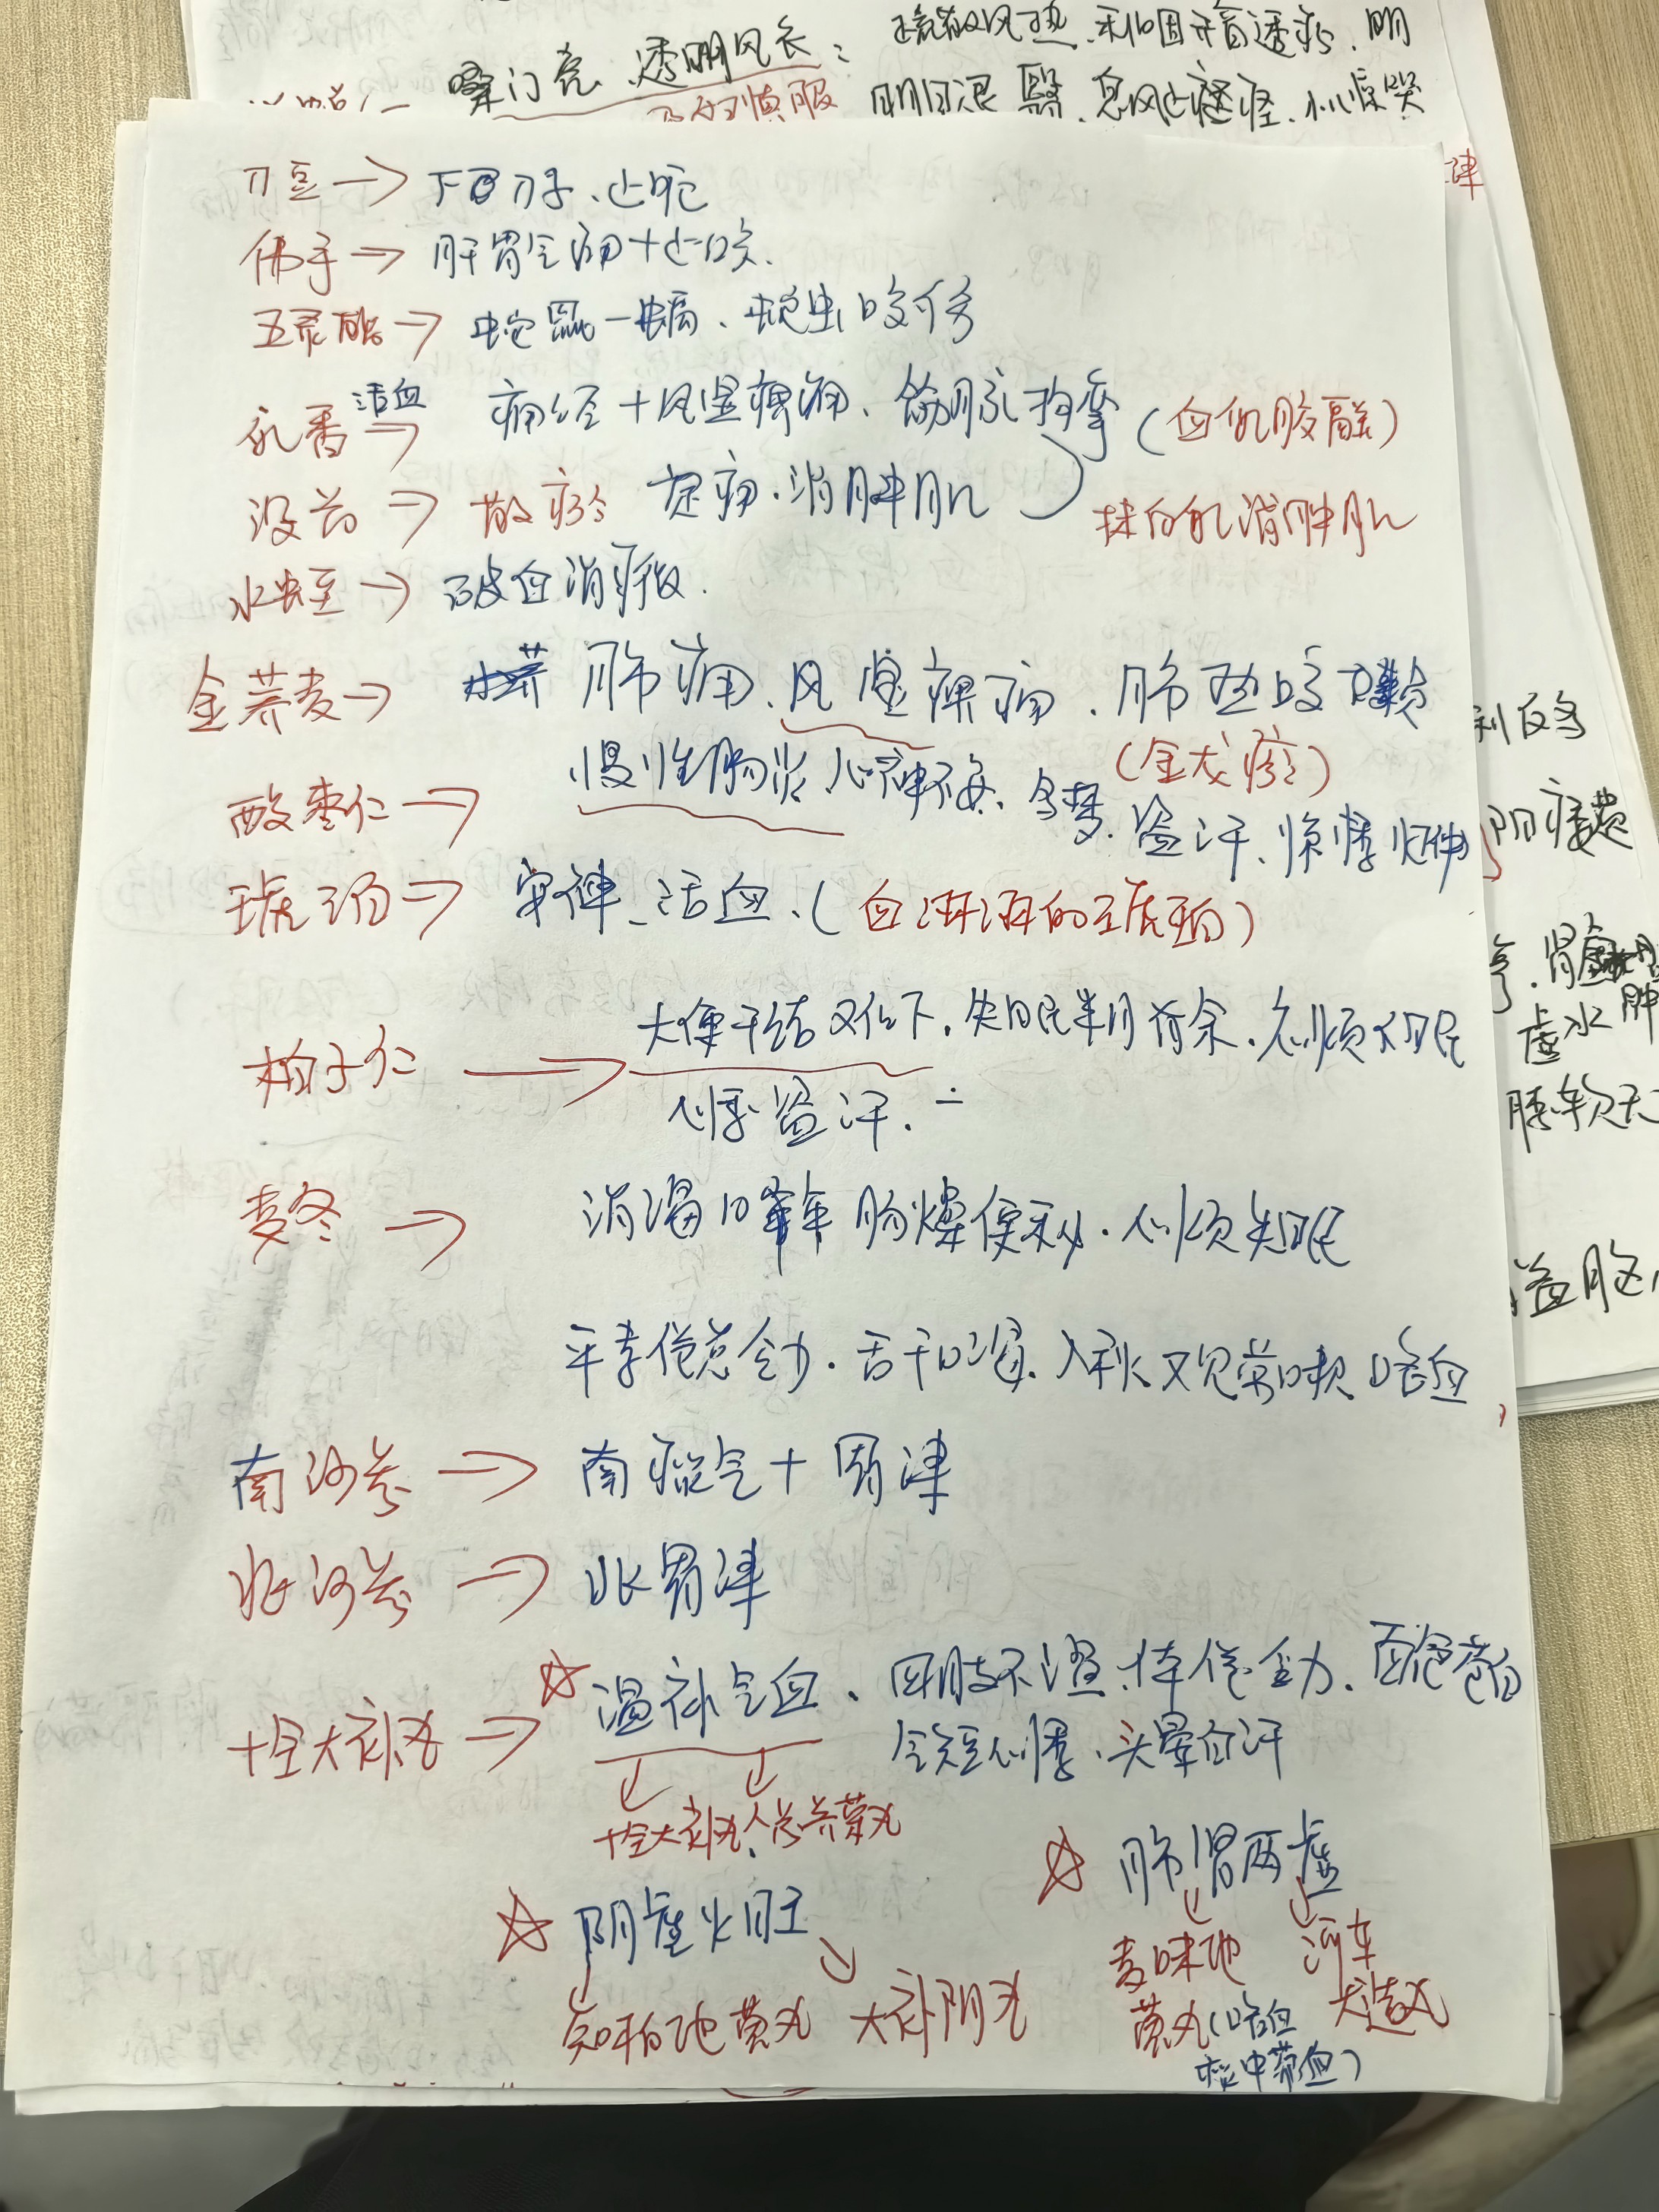 嗓门亮、透明风衣: 疏散风热、利咽开音透疹、明
明目退翳、息风止痉
刀豆→下口刀子、止呃
佛手→肝胃气痛+止咳.
五灵脂→蛇 蝎一蜈蚣、蛇虫咬伤
乳香→ 活血 痛经+风湿痹痛、筋脉拘挛(血乳胶融)
没药→散瘀 定痛.消肿生肌 抹白乳消肿生肌
水蛭→破血消癥.
金荞麦→肺痈、风湿痹痛.肺热咳嗽
(金犬)
慢性肠炎
酸枣仁→心神不安、多梦、盗汗、惊悸怔忡
琥珀→安神、活血、(血淋淋的琥珀)
柏子仁→大便干结难下,失眠半月有余.心烦不眠
心悸盗汗.
麦冬→消渴10余年 肠燥便秘.心烦失眠
平素倦怠乏力.舌干口渴、入秋又见常咳 咯血
南沙参→南痰气+胃津
北沙参→北胃津
十全大补丸→☆温补气血、四肢不温、体倦乏力、面色苍白
气短心悸、头晕自汗
十全大补丸、人参养荣丸
☆肺肾两虚
☆阴虚火旺
麦味地黄丸(咯血 痰中带血) 河车大造丸
知柏地黄丸 大补阴丸
利
阴痿
肾虚
虚水肿
腰软无
益脑